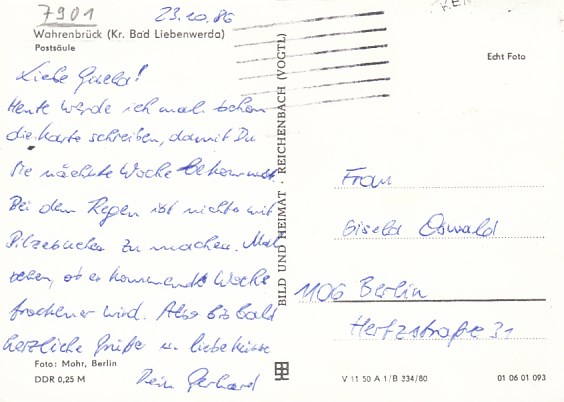 7901
23.10.86
Wahrenbrück (Kr. Bad Liebenwerda)
Postsäule
Liebe Gisela!
Heute werde ich mal schon
die Karte schreiben, damit Du
sie nächste Woche bekommst.
Bei dem Regen ist nichts mit
Pilzesuchen zu machen. Mal
sehen, ob es kommende Woche
trockener wird. Also bis bald
herzliche Grüße u. liebe Küsse
Dein Gerhard
Foto: Mohr, Berlin
DDR 0,25 M
BILD UND HEIMAT · REICHENBACH (VOGTL)
Echt Foto
Frau
Gisela Oswald
1106 Berlin
Hertzstraße 31
V 11 50 A 1/B 334/80
01 06 01 093